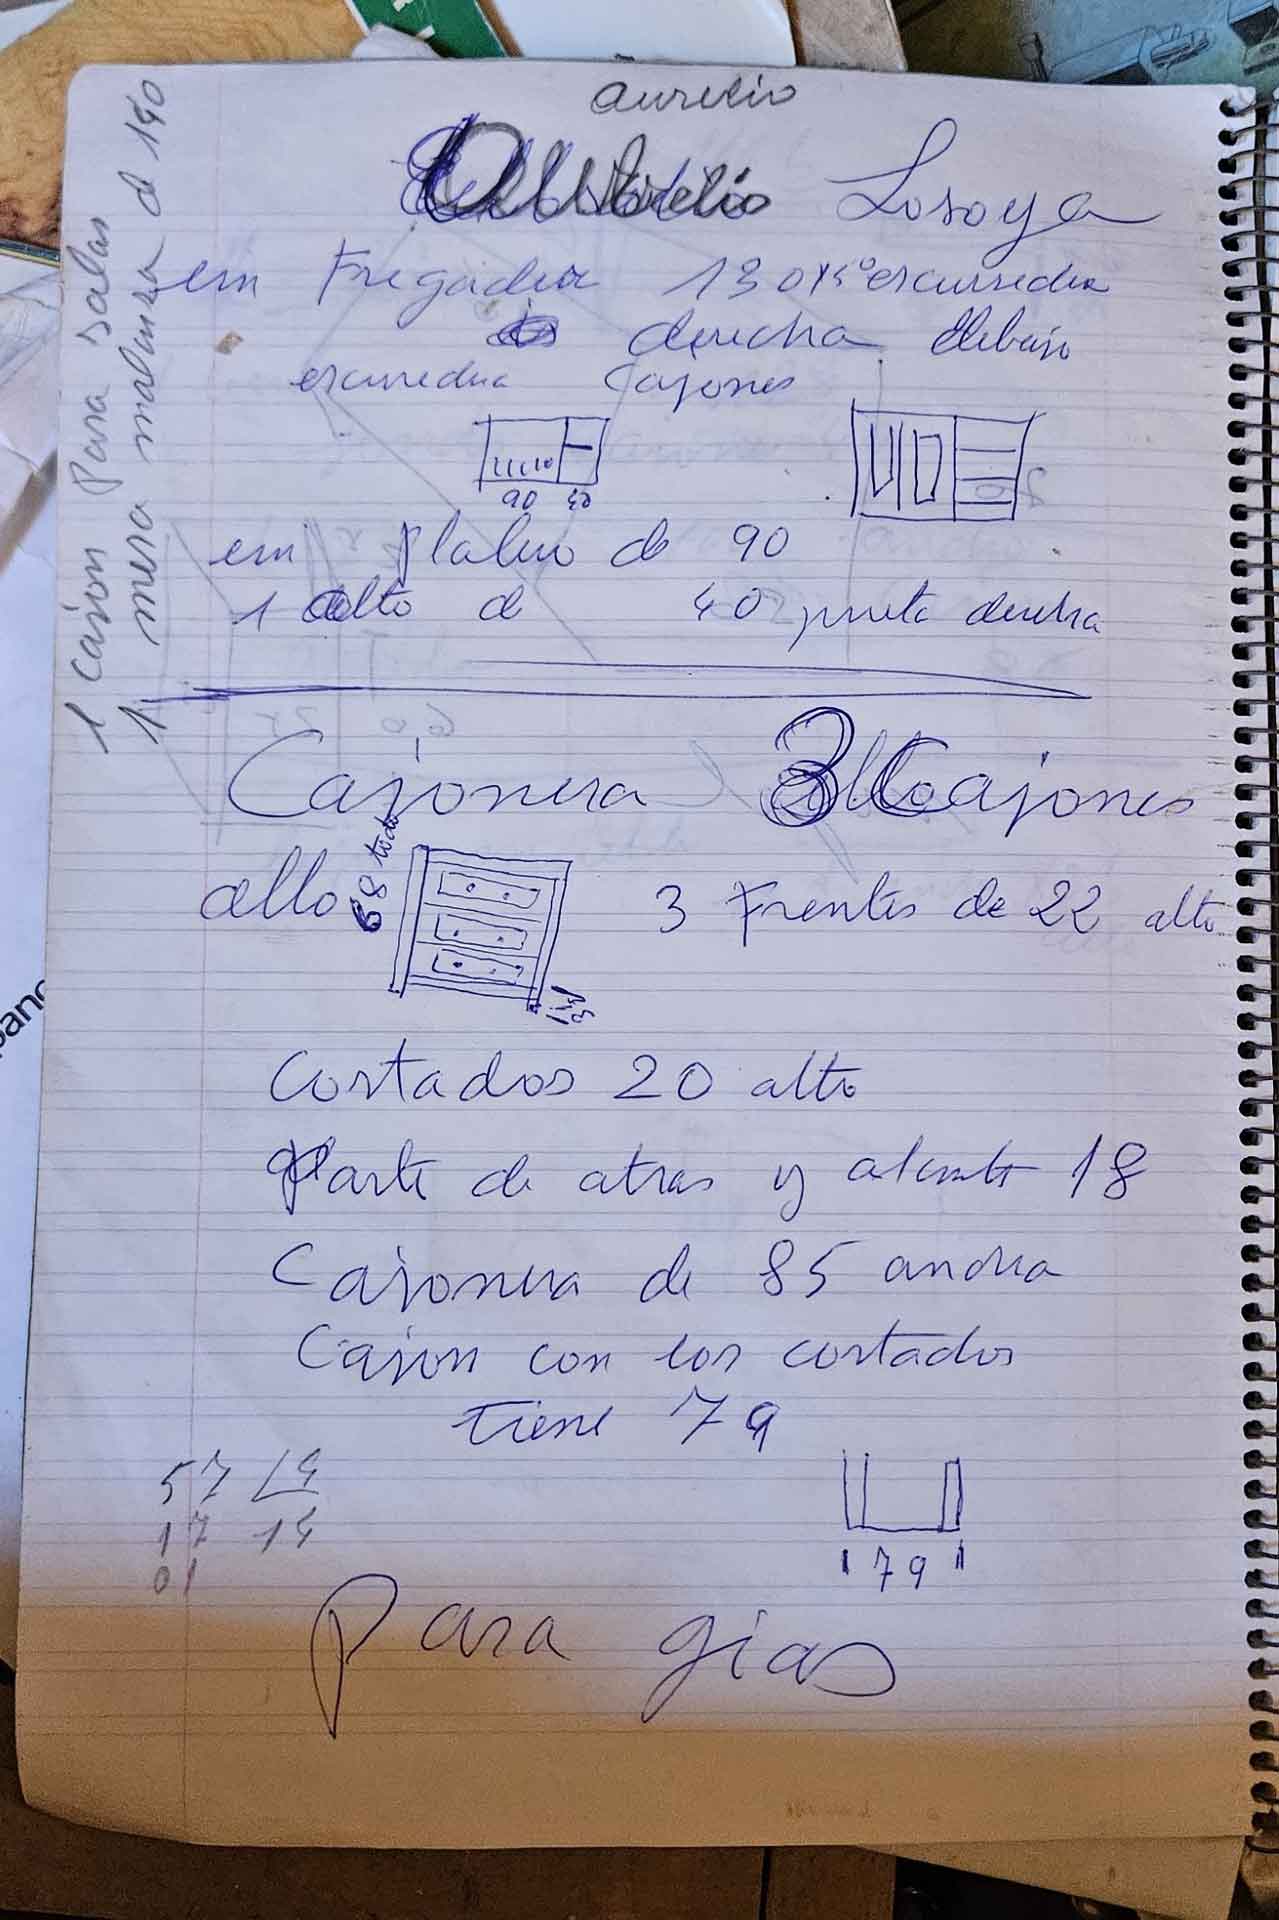 aurelio
Aurelio Losoya
em Fregadera 130 escurredera
derecha debajo
escurredera Cajones
90 40
em Platero de 90
1 alto d 40 puerta derecha
1 cajon Para salas
1 mesa matansa d 140
Cajonera 3 Cajones
alto 68 todo
3 Frentes de 22 alto
Costados 20 alto
Parte de atras y alante 18
Cajonera de 85 ancha
Cajon con los costados
tiene 79
57 4
17 14
01
79
Para gias